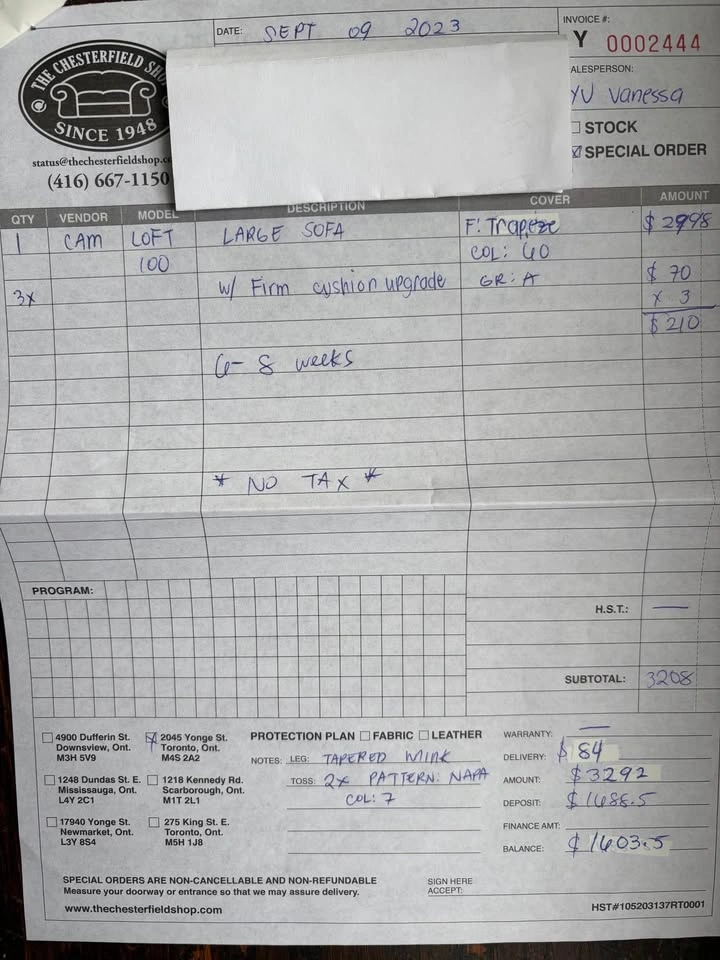 DATE: SEPT 09 2023
INVOICE #:
Y 0002444
THE CHESTERFIELD SHO
SINCE 1948
ALESPERSON:
YU Vanessa
STOCK
SPECIAL ORDER
status@thechesterfieldshop.c
(416) 667-1150
QTY VENDOR MODEL DESCRIPTION COVER AMOUNT
1 CAM LOFT LARGE SOFA F: Trapeze $2998
100 COL: 60
3x w/ Firm cushion upgrade GR: A $ 70
x 3
$ 210
6- 8 weeks
* NO TAX *
PROGRAM:
H.S.T.: —
SUBTOTAL: 3208
4900 Dufferin St.
Downsview, Ont.
M3H 5V9
2045 Yonge St.
Toronto, Ont.
M4S 2A2
1248 Dundas St. E.
Mississauga, Ont.
L4Y 2C1
1218 Kennedy Rd.
Scarborough, Ont.
M1T 2L1
17940 Yonge St.
Newmarket, Ont.
L3Y 8S4
275 King St. E.
Toronto, Ont.
M5H 1J8
PROTECTION PLAN FABRIC LEATHER
NOTES: LEG: TAPERED MINK
TOSS: 2x PATTERN: NAPA
COL: 7
WARRANTY: —
DELIVERY: $ 84
AMOUNT: $3292
DEPOSIT: $1688.5
FINANCE AMT:
BALANCE: $1603.5
SPECIAL ORDERS ARE NON-CANCELLABLE AND NON-REFUNDABLE
Measure your doorway or entrance so that we may assure delivery.
SIGN HERE
ACCEPT:
www.thechesterfieldshop.com
HST#105203137RT0001